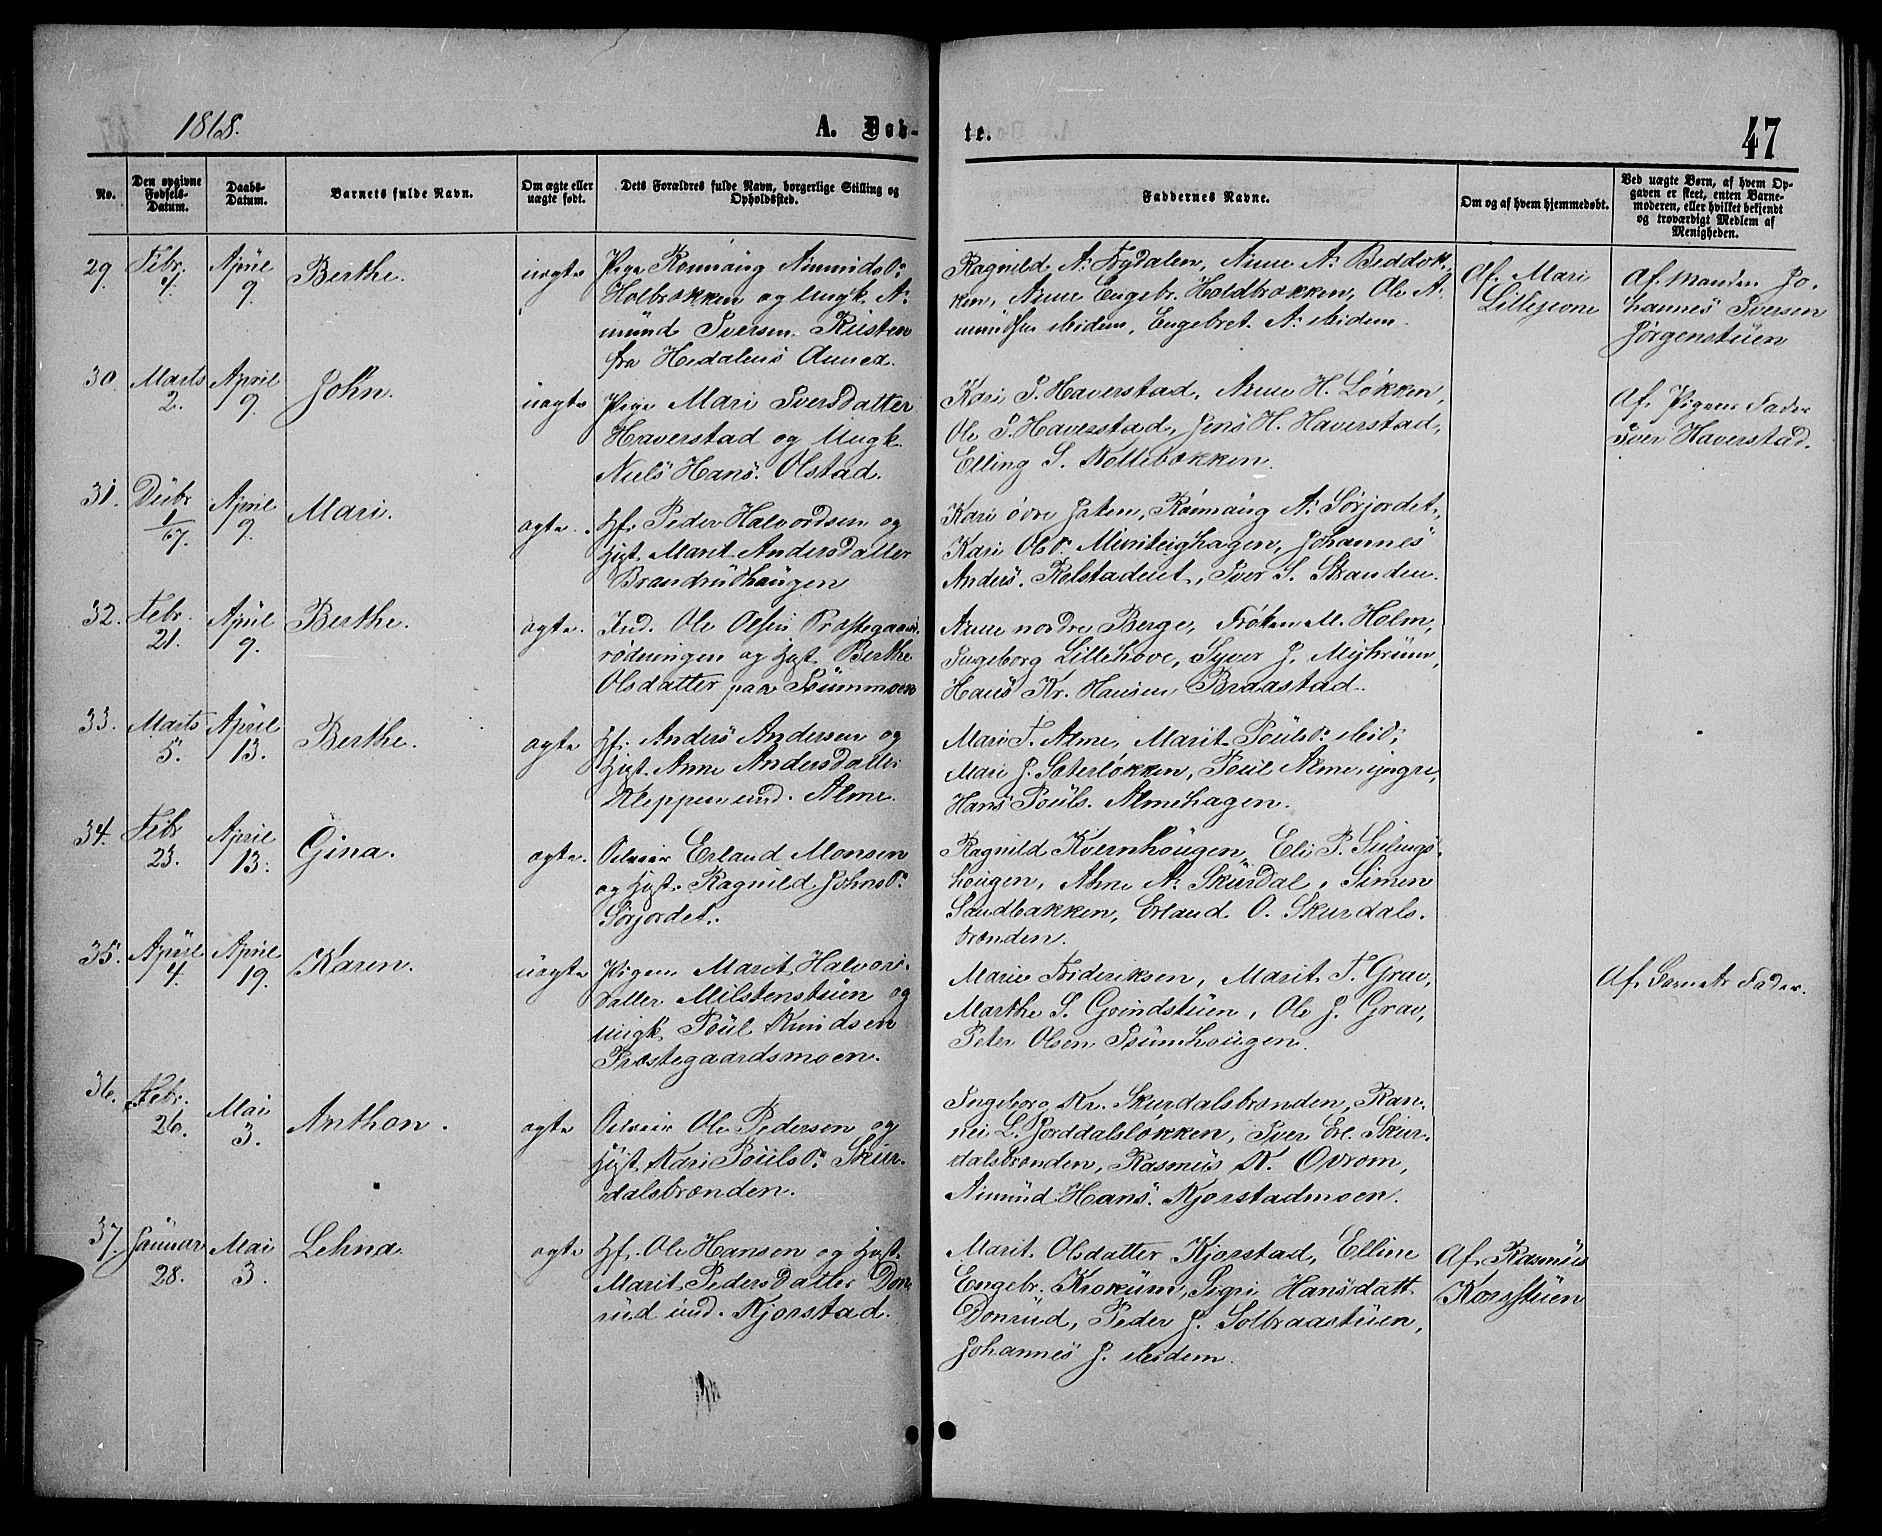 1868.
A. Døb-
te.
47
No.
Den opgivne Fødsels-Datum.
Daabs-Datum.
Barnets fulde Navn.
Om ægte eller uægte født.
Dets Forældres fulde Navn, borgerlige Stilling og Opholdssted.
Faddernes Navne.
Om og af hvem hjemmedøbt.
Ved uægte Børn, af hvem Op-
gaven er skeet, enten Barne-
moderen, eller hvilket bekjendt
og troværdigt Medlem af
Menigheden.
29. Febr. 4. April 9. Berthe. uægte
Pige Rønnaug Amundsd.
Holbrækken og Ungk. A-
mund Iversen
fra Hedalens Annex.
Ragnild A. Nydalen, Anne A.
Anne Engebr. Holdbrækken, Ole A-
mundsen ibidem, Engebret A. ibidem.
Af Mari
Af Manden Jo-
hannes Iversen
Jørgenstuen
30. Marts 2. April 9. John. uægte
Pige Mari Iversdatter
Haverstad og Ungk.
Niels Hans. Olstad.
Kari I. Haverstad, Anne H. Løkken,
Ole I. Haverstad, Jens H. Haverstad,
Elling S. Nottebækken.
Af Pigens Fader
Iver Haverstad.
31. Decbr 1/67. April 9. Mari. ægte.
Hf. Peder Halvordsen og
Hust. Marit Andersdatter
Brandrudhaugen
Kari øvre Jaten, Rønnaug A. Sørjordet,
Kari Olsd. Johannes
Anders. Iver S. Stranden.
32. Febr. 21. April 9. Berthe. ægte.
Ind. Ole Olsen
rødningen og Hust. Berthe
Olsdatter paa
Anne nordre Berge, Frøken M. Holm,
Ingeborg Lillehove, Syver J.
Hans Kr. Hansen Braastad.
33. Marts 5. April 13. Berthe. ægte
Hf. Anders Andersen og
Hust. Anne Andersdatter
Kleppen und. Alme.
Mari T. Alme, Marit Pouls d. ibid,
Mari J. Sæterløkken, Poul Alme yngre,
Hans Pouls. Almehagen.
34. Febr 23. April 13. Gina. ægte.
Erland Monsen
og Hust. Ragnild Johnsd.
Sørjordet.
Ragnild Kvernhougen, Eli P.
hougen, Anne A. Skurdal, Simen
Sandbakken, Erland O. Skurdals-
brænden.
35. April 4. April 19. Karen. uægte
Pigen Marit Halvors-
datter Milstenstuen og
Ungk. Poul Knudsen
Præstegaardsmoen.
Marie Frideriksen, Marit T. Grav,
Marthe S. Grindstuen, Ole J. Grav,
Peter Olsen
Af Barnets Fader.
36. Febr. 26. Mai 3. Anthon. ægte
Ole Pedersen og
Hust. Kari Pouls d. Skur-
dalsbrænden.
Ingeborg Kr. Skurdalsbrænden, Ran-
nei L. Jorddalsløkken, Iver Erl. Skur-
dalsbrænden, Rasmus K. Øvrom,
Amund Hans. Kjorstadmoen.
37. Januar 28. Mai 3. Lehna. ægte
Hf. Ole Hansen og Hust.
Marit Pedersdatter Don-
rud und. Kjorstad.
Marit Olsdatter Kjorstad, Elline
Engebr. Krokum, Sigri Hansdatt.
Donrud, Peder J. Solbraastuen,
Johannes J. ibidem.
Af Rasmus
Korsstuen